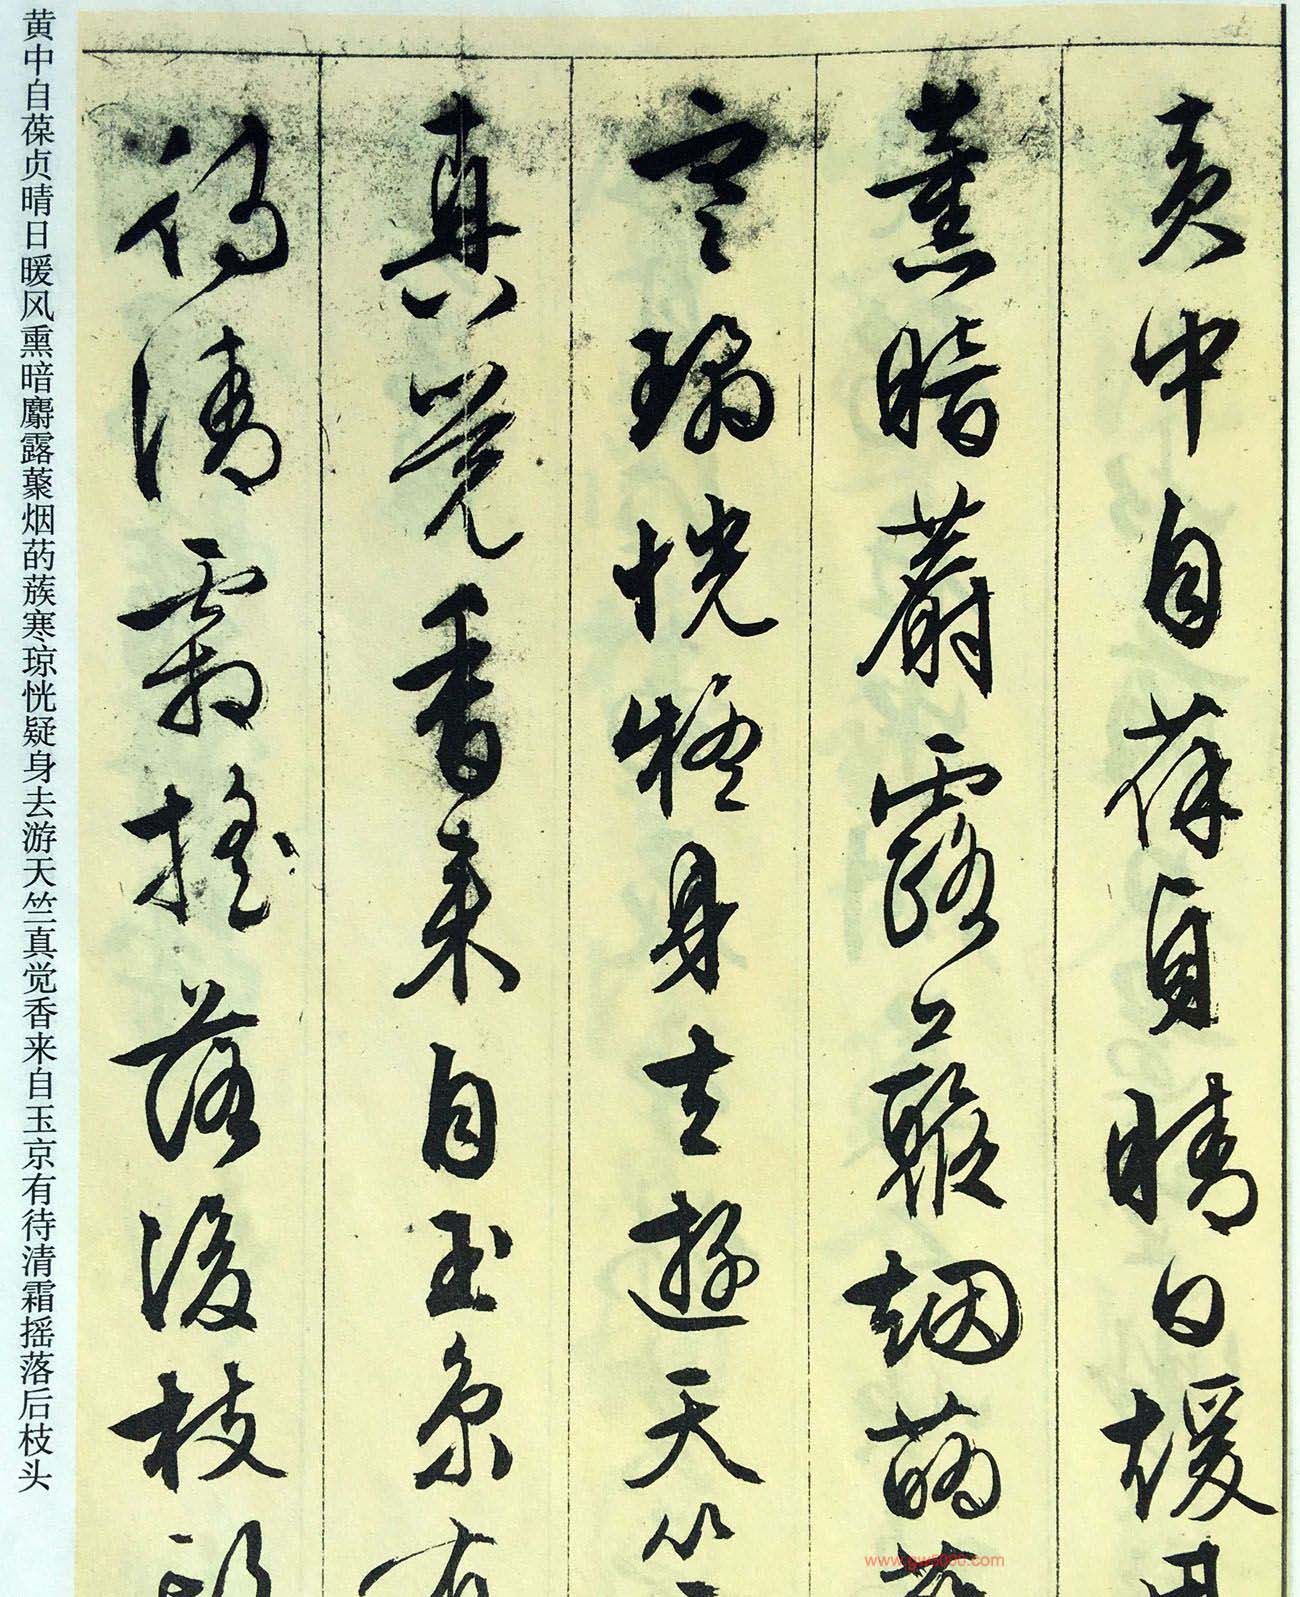 黄中自葆贞晴日暖风熏暗麝露蘂烟药蔟寒琼恍疑身去游天竺真觉香来自玉京有待清霜摇落后枝头
黄中自葆貞晴日煖風
薰暗麝露蘂烟葯蔟
寒瓊恍疑身去遊天竺
真覺香来自玉京有
待清霜摇落後枝頭
www.gw6000.com